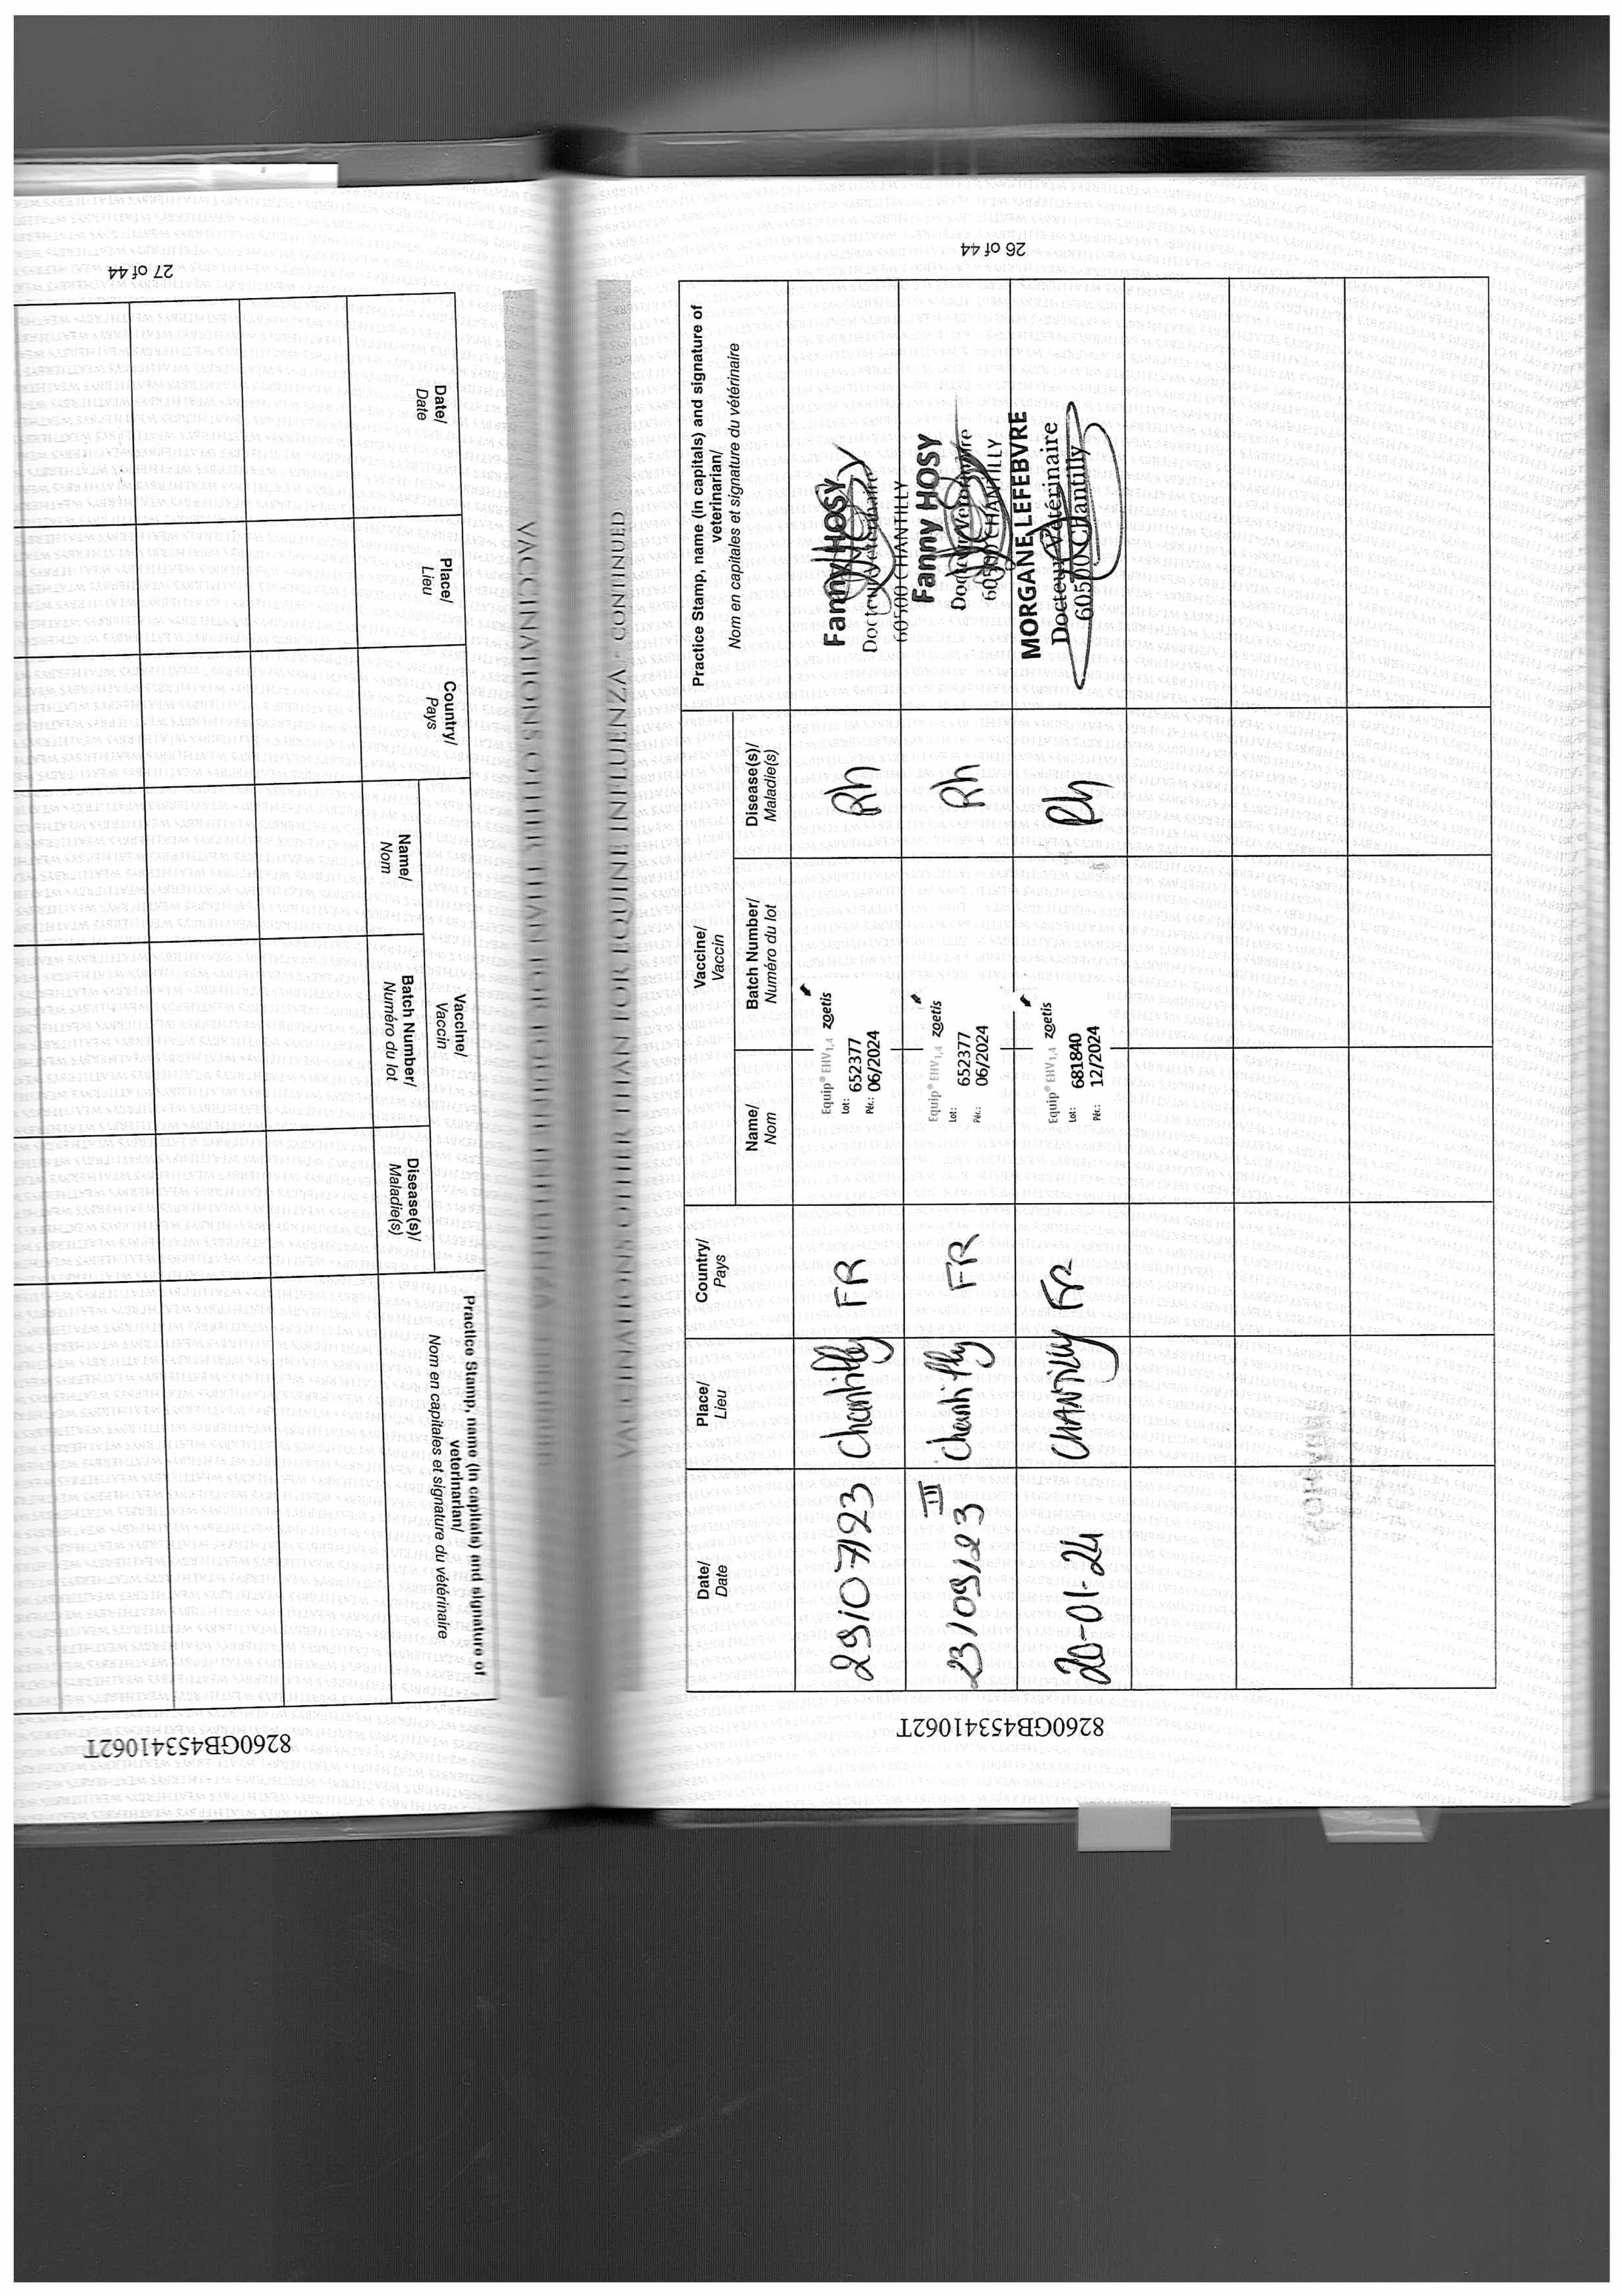 26 of 44
VACCINATIONS OTHER THAN FOR EQUINE INFLUENZA - CONTINUED
Date/
Date
Place/
Lieu
Country/
Pays
Vaccine/
Vaccin
Name/
Nom
Batch Number/
Numéro du lot
Disease(s)/
Maladie(s)
Practice Stamp, name (in capitals) and signature of
veterinarian/
Nom en capitales et signature du vétérinaire
29/07/23 Chantilly FR
Equip® EHV1,4 zoetis
Lot: 652377
Pér.: 06/2024
Rh
Fanny HOSY
Docteur Vétérinaire
60500 CHANTILLY
III
23/09/23 Chantilly FR
Equip® EHV1,4 zoetis
Lot: 652377
Pér.: 06/2024
Rh
Fanny HOSY
Docteur Vétérinaire
60500 CHANTILLY
20-01-24 CHANTILLY FR
Equip® EHV1,4 zoetis
Lot: 681840
Pér.: 12/2024
Rh
MORGANE LEFEBVRE
Docteur Vétérinaire
60500 CHantilly
8260GB45341062T
27 of 44
VACCINATIONS OTHER THAN FOR EQUINE INFLUENZA
Date/
Date
Place/
Lieu
Country/
Pays
Vaccine/
Vaccin
Name/
Nom
Batch Number/
Numéro du lot
Disease(s)/
Maladie(s)
Practice Stamp, name (in capitals) and signature of
veterinarian/
Nom en capitales et signature du vétérinaire
8260GB45341062T